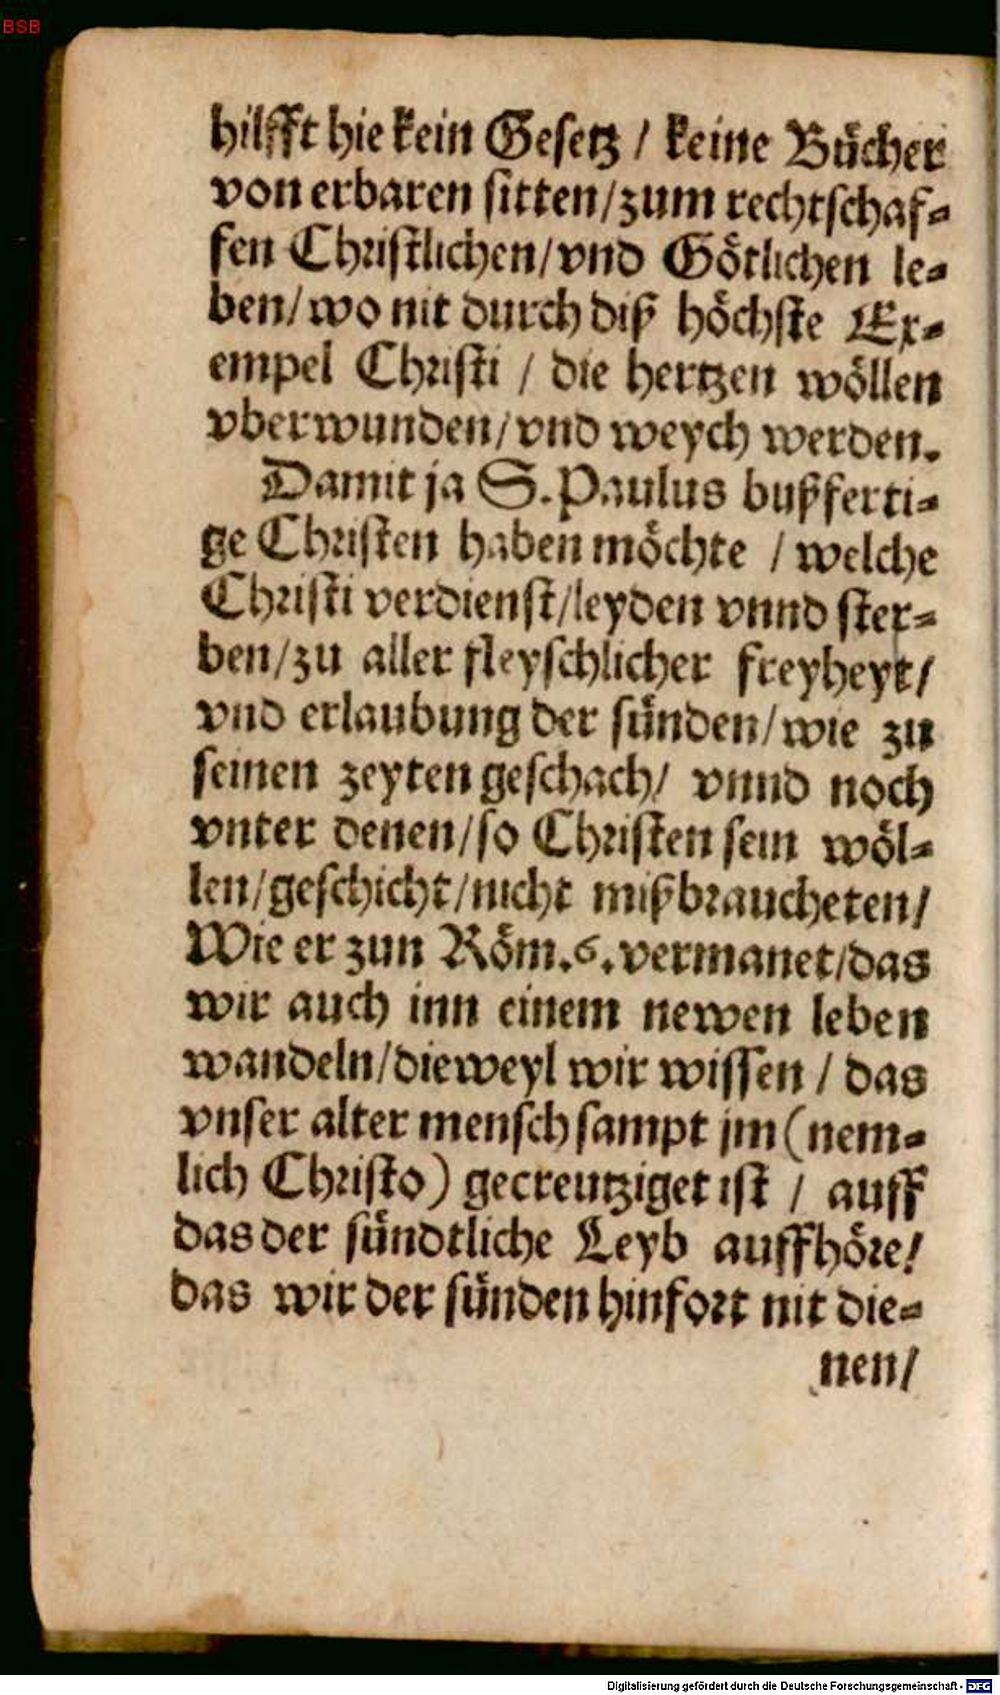 BSB
hilfft hie kein Gesetz / keine Bücher
von erbaren sitten/zum rechtschaf-
fen Christlichen/vnd Götlichen le-
ben/wo nit durch diß höchste Ex-
empel Christi / die hertzen wöllen
vberwunden/vnd weych werden.
Damit ja S. Paulus bußferti-
ge Christen haben möchte / welche
Christi verdienst/leyden vnnd ster-
ben/zu aller fleyschlicher freyheyt/
vnd erlaubung der sünden/wie zu
seinen zeyten geschach/ vnnd noch
vnter denen/so Christen sein wöl-
len/geschicht/nicht mißbraucheten/
Wie er zun Röm.6.vermanet/das
wir auch inn einem newen leben
wandeln/dieweyl wir wissen / das
vnser alter mensch sampt jm (nem-
lich Christo) gecreutziget ist / auff
das der sündtliche Leyb auffhöre/
das wir der sünden hinfort nit die-
nen/
Digitalisierung gefördert durch die Deutsche Forschungsgemeinschaft - DFG